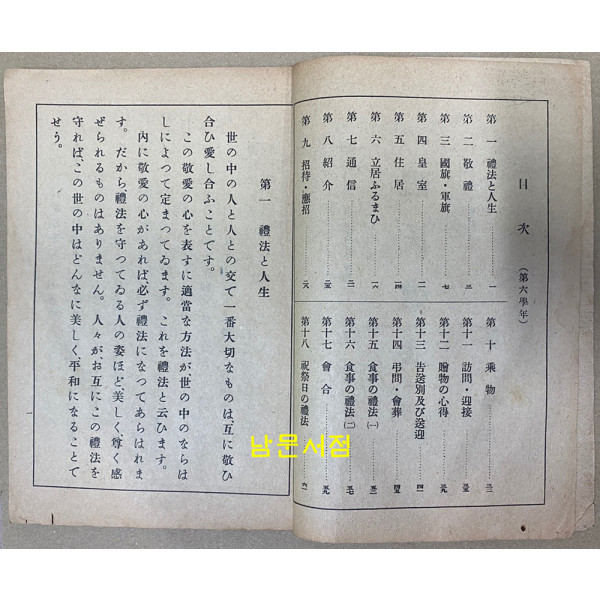 目次 (第六學年)
第一 禮法と人生 一
第二 敬禮
第三 國旗・軍旗 七
第四 皇室 二
第五 住居
第六 立居ふるまひ
第七 通信
第八 紹介
第九 招待・應招
第十 乘物
第十一 訪問・迎接
第十二 贈物の心得
第十三 告送別及び送迎
第十四 弔問・會葬
第十五 食事の禮法(一)
第十六 食事の禮法(二)
第十七 會合
第十八 祝祭日の禮法
第一 禮法と人生
世の中の人と人との交て一番大切なものは、互に敬ひ
合ひ愛し合ふことです。
この敬愛の心を表すに適當な方法が、世の中のならは
しによつて定まつてゐます。これを禮法と云ひます。
內に敬愛の心があれば、必ず禮法になつてあらはれま
す。だから禮法を守つてゐる人の姿ほど、美しく、尊く感
ぜられるものはありません。人々が、お互にこの禮法を
守れば、この世の中はどんなに美しく、平和になることで
せう。
남문서점